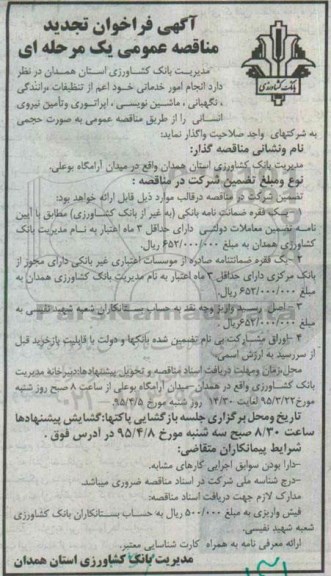 آگهی فراخوان تجدید
مناقصه عمومی یک مرحله ای
بانک کشاورزی
مدیریت بانک کشاورزی استان همدان در نظر
دارد انجام امور خدماتی خود اعم از تنظیفات، رانندگی
، نگهبانی، ماشین نویسی، اپراتوری وتأمین نیروی
انسانی را از طریق مناقصه عمومی به صورت حجمی
به شرکتهای واجد صلاحیت واگذار نماید:
نام ونشانی مناقصه گذار:
مدیریت بانک کشاورزی استان همدان واقع در میدان آرامگاه بوعلی.
نوع ومبلغ تضمین شرکت در مناقصه :
تضمین شرکت در مناقصه درقالب موارد ذیل قابل ارائه خواهد بود:
یک فقره ضمانت نامه بانکی (به غیر از بانک کشاورزی) مطابق با آیین
نامه تضمین معاملات دولتی دارای حداقل ۳ ماه اعتبار به نام مدیریت بانک
کشاورزی همدان به مبلغ ۶۵۲/۰۰۰/۰۰۰ ریال.
۲ - یک فقره ضمانتنامه صادره از موسسات اعتباری غیر بانکی دارای مجوز از
بانک مرکزی دارای حداقل ۳ ماه اعتبار به نام مدیریت بانک کشاورزی همدان به
مبلغ ۶۵۲/۰۰۰/۰۰۰ ریال.
۳ - اصل رسید واریز وجه نقد به حساب بستانکاران شعبه شهید نفیسی به
مبلغ ۶۵۲/۰۰۰/۰۰۰ ریال
۴ - اوراق مشارکت بی نام تضمین شده بانکها و دولت با قابلیت بازخرید قبل
از سررسید به ارزش اسمی.
محل،زمان ومهلت دریافت اسناد مناقصه و تحویل پیشنهادها:دبیرخانه مدیریت
بانک کشاورزی واقع در همدان -میدان آرامگاه بوعلی از ساعت ۸ صبح روز شنبه
مورخ ۹۵/۳/۲۲ لغایت ۱۴/۳۰ روز شنبه مورخ ۹۵/۴/۵.
تاریخ ومحل برگزاری جلسه بازگشایی پاکتها:گشایش پیشنهادها
ساعت ۸/۳۰ صبح سه شنبه مورخ ۹۵/۴/۸ در ادرس فوق .
شرایط پیمانکاران متقاضی:
-دارا بودن سوابق اجرایی کارهای مشابه.
-درج شناسه ملی شرکت در اسناد مناقصه ضروری میباشد.
مدارک لازم جهت دریافت اسناد مناقصه:
فیش واریزی به مبلغ ۵۰۰/۰۰۰ ریال به حساب بستانکاران بانک کشاورزی
شعبه شهید نفیسی.
ارائه معرفی نامه به همراه کارت شناسایی معتبر.
مدیریت بانک کشاورزی استان همدان